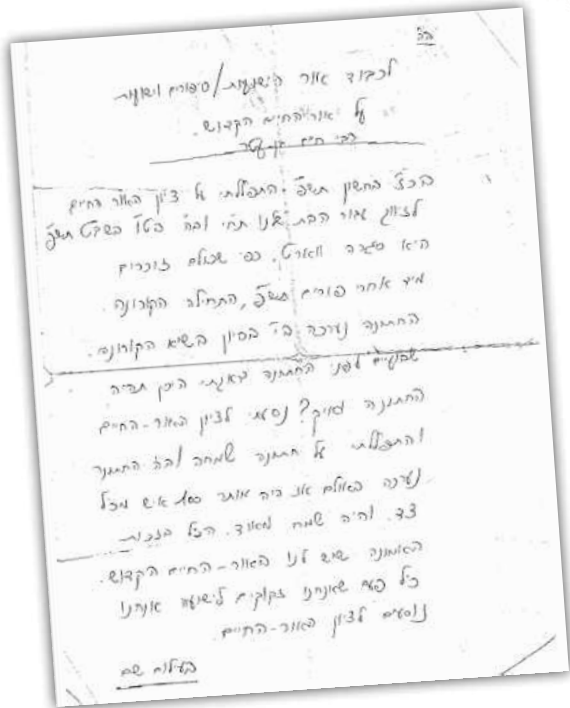 בה
לכבוד אור הישועות/סיפורים וישועות
על אור-החיים הקדוש.
רבי חיים בן עטר
בכ"ג בחשון תש"פ התפללתי על ציון האור החיים
לזיווג עבור הבת שלנו תחי' ובה' בט"ו בשבט תש"פ
היא סגרה ווארט. כפי שכולם זוכרים
מיד אחרי פורים תש"פ, התחילה הקורונה.
החתונה נערכה בי' בסיון בשיא הקורונה.
שבועיים לפני החתונה דאגתי היכן תהיה
החתונה ואיך? נסעתי לציון האור-החיים
והתפללתי על חתונה שמחה ובה' החתונה
נערכה באולם אז היה מותר 100 איש מכל
צד. והיה שמח מאוד. הכל בזכות
האמונה שיש לנו באור-החיים הקדוש.
כל פעם שאנחנו זקוקים לישועה אנחנו
נוסעים לציון האור-החיים.
בעילום שם